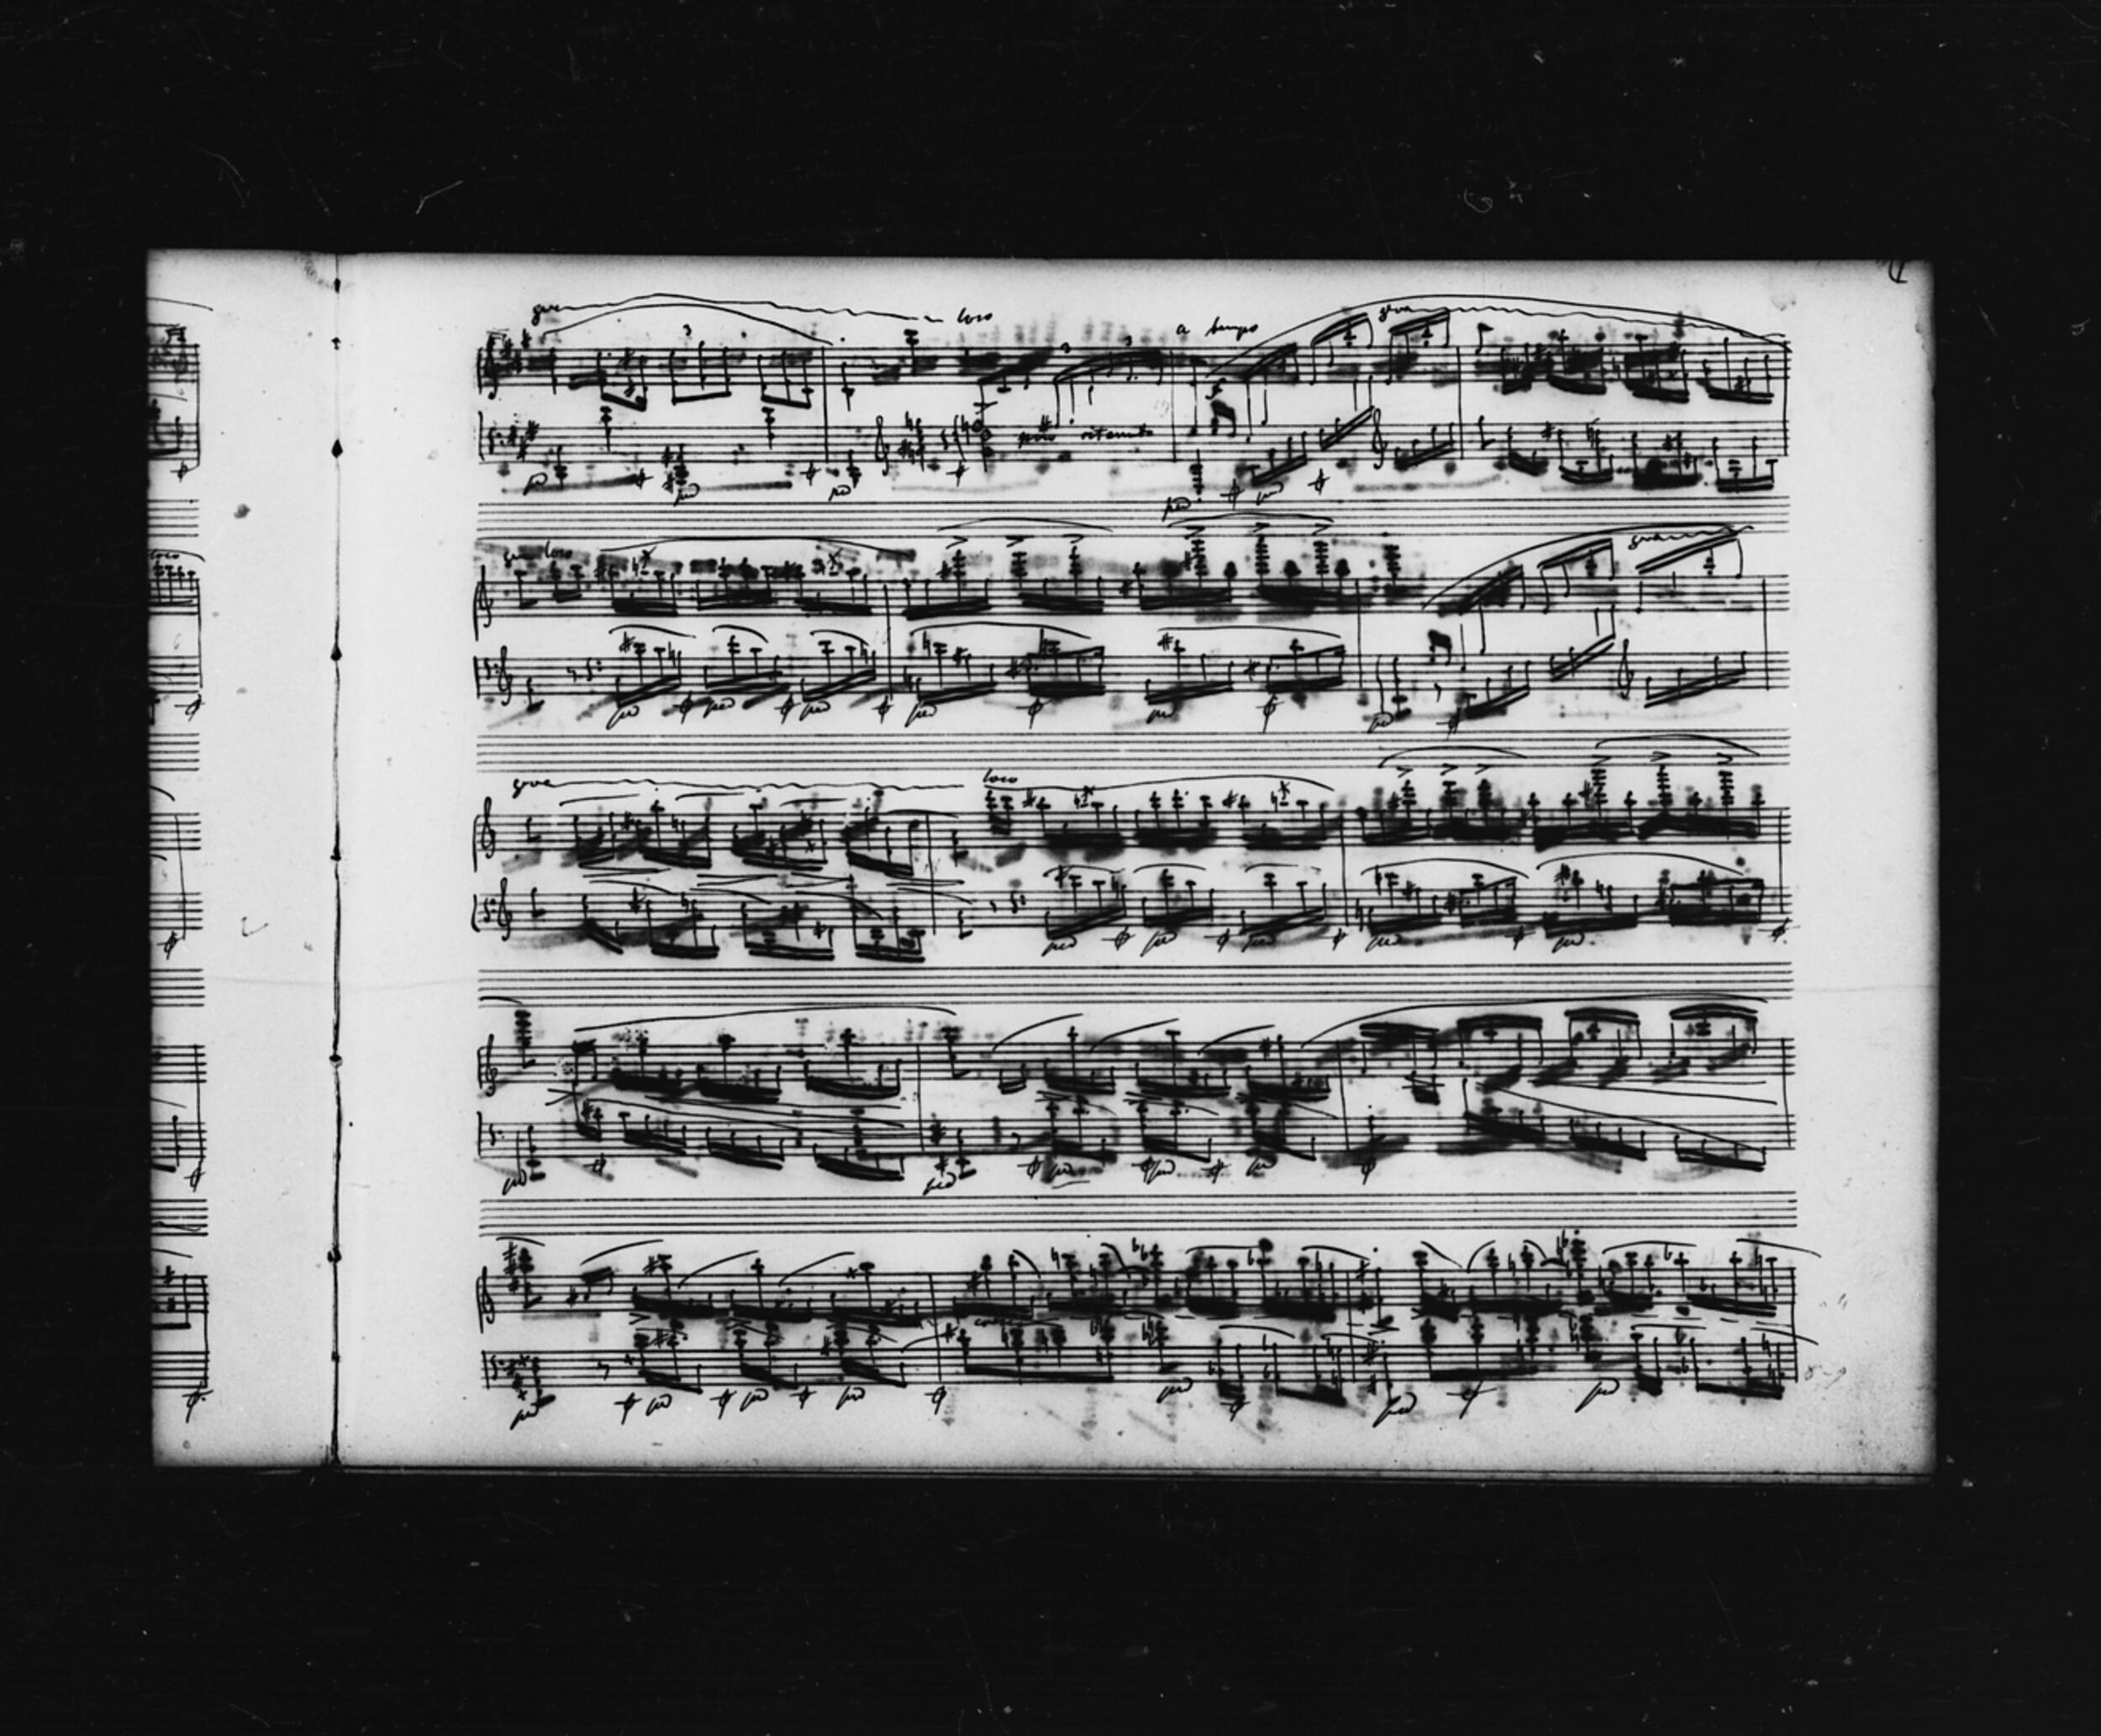 8va loco
3
3 3
a tempo 8va
poco ritenuto
ped ped ped ped ped
8va loco
8va
ped ped ped ped ped ped
8va loco
ped ped ped ped ped
ped ped ped ped ped
cresc
ped ped ped ped ped ped ped